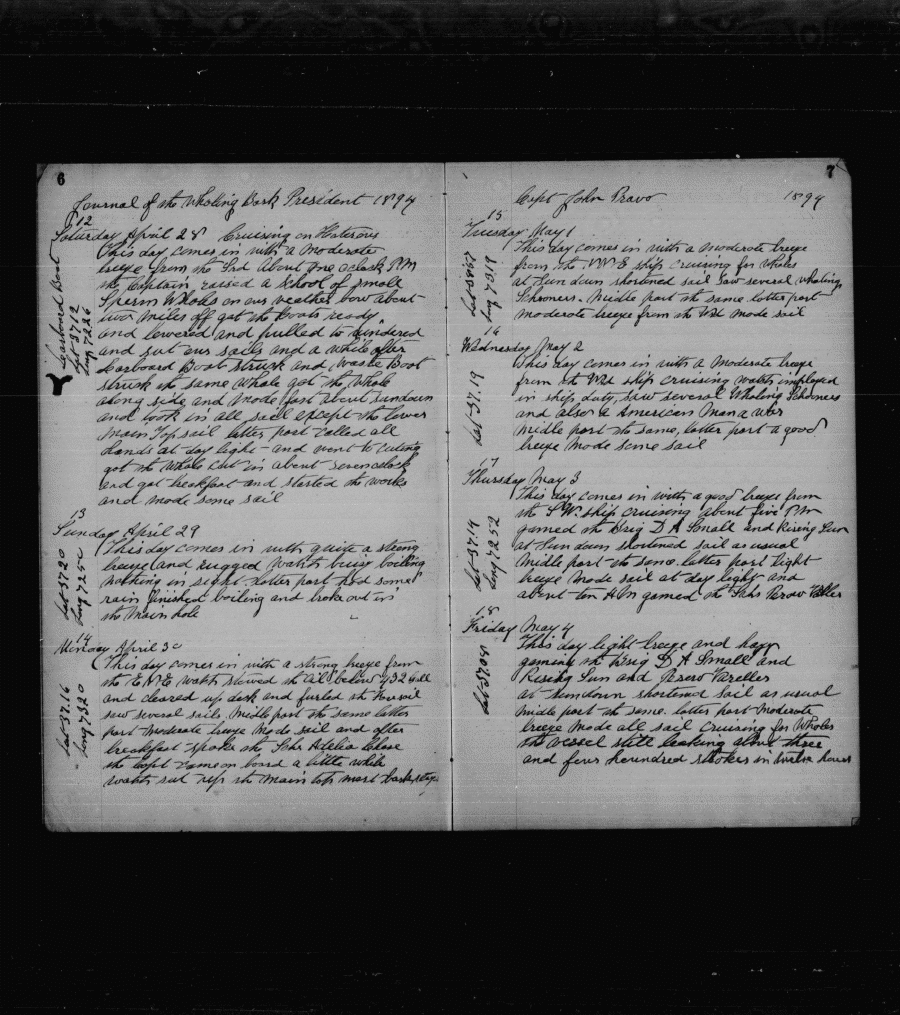 6
Journal of the Whaling Bark President 1894
12
Saturday April 28 Cruising on Haterous
This day comes in with a moderate
breeze from the Srd About one oclock PM
the Captain raised a school of small
Sperm Whales on our weather bow about
two miles off got the boats ready
and lowered and pulled to windered
and sut our sails and a while after
Larboard Boat struck and Waste Boat
struck the same whale got the Whale
along side and made fast about sundown
and took in all sail except the lower
main Topsail latter part called all
hands at day light and went to cuting
got the Whale cut in about seven oclock
and got breakfast and started the works
and made some sail
Larboard Boat
Lat 37.12
Lng 72.26
13
Sunday April 29
This day comes in with quite a strong
breeze and rugged Watch busy boiling
nothing in sight latter part had some
rain finished boiling and broke out in
the main hole
Lat 37.20
Lng 72.52
14
Monday April 30
This day comes in with a strong breeze from
the ENE watch stowed the oil below 932 Gall
and cleared up deck and furled the Foresail
saw several sails Middle part the same latter
part moderate breeze made sail and after
breakfast spoke the Schr Adelia Chase
the capt came on board a little while
watch sut up the main top mast backstays
Lat 37.16
Lng 73.20
7
Capt John Pravo 1894
15
Tuesday May 1
This day comes in with a moderate breeze
from the NNE ship cruising for whales
at Sun down shortened sail Saw several Whaling
Schroners. Middle part the same latter part
moderate breeze from the Wd made sail
Lng 73.19
16
Wednesday May 2
This day comes in with a moderate breeze
from the Wd ship cruising watch imployed
in ships duty, saw several Whaling Schroners
and also a American Man a war
middle part the same, latter part a good
breeze made some sail
Lat 37.19
17
Thursday May 3
This day comes in with a good breeze from
the S.W. ship cruising about five PM
gamed the Brig D A Small and Rising Sun
at Sun down shortened sail as usual
Middle part the same. latter part light
breeze made sail at day light and
about ten AM gamed the Schr
Lat 37.14
Lng 72.52
18
Friday May 4
This day light breeze and hazy
gaming the Brig D A Small and
Rising Sun and
at sundown shortened sail as usual
middle part the same. latter part moderate
breeze made all sail Cruising for Whales
the vessel still leaking about three
and four hundred strokes in twelve hours